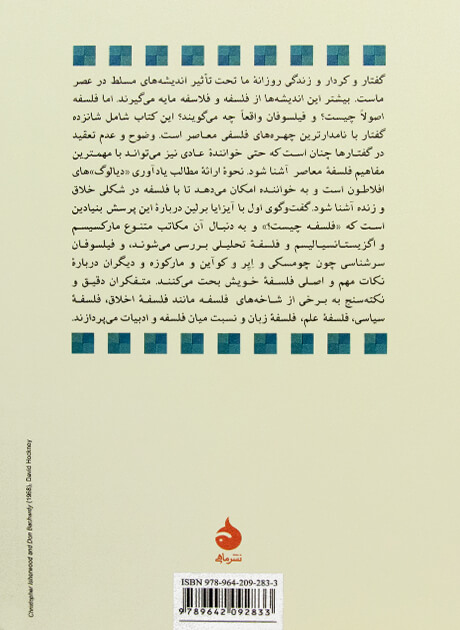 گفتار و کردار و زندگی روزانهٔ ما تحت تأثیر اندیشه‌های مسلط در عصر
ماست. بیشتر این اندیشه‌ها از فلسفه و فلاسفه مایه می‌گیرند. اما فلسفه
اصولاً چیست؟ و فیلسوفان واقعاً چه می‌گویند؟ این کتاب شامل شانزده
گفتار با نامدارترین چهره‌های فلسفی معاصر است. وضوح و عدم تعقید
در گفتارها چنان است که حتی خوانندهٔ عادی نیز می‌تواند با مهمترین
مفاهیم فلسفهٔ معاصر آشنا شود. نحوهٔ ارائهٔ مطالب یادآوری «دیالوگ»های
افلاطون است و به خواننده امکان می‌دهد تا با فلسفه در شکلی خلاق
و زنده آشنا شود. گفت‌وگوی اول با آیزایا برلین دربارهٔ این پرسش بنیادین
است که «فلسفه چیست؟» و به دنبال آن مکاتب متنوع مارکسیسم
و اگزیستانسیالیسم و فلسفهٔ تحلیلی بررسی می‌شوند، و فیلسوفان
سرشناسی چون چومسکی و اِیر و کوآین و مارکوزه و دیگران دربارهٔ
نکات مهم و اصلی فلسفهٔ خویش بحث می‌کنند. متفکران دقیق و
نکته‌سنج به برخی از شاخه‌های فلسفه مانند فلسفهٔ اخلاق، فلسفهٔ
سیاسی، فلسفهٔ علم، فلسفهٔ زبان و نسبت میان فلسفه و ادبیات می‌پردازند.
Christopher Isherwood and Don Bachardy (1968), David Hockney
نشر ماهی
ISBN 978-964-209-283-3
9 789642 092833